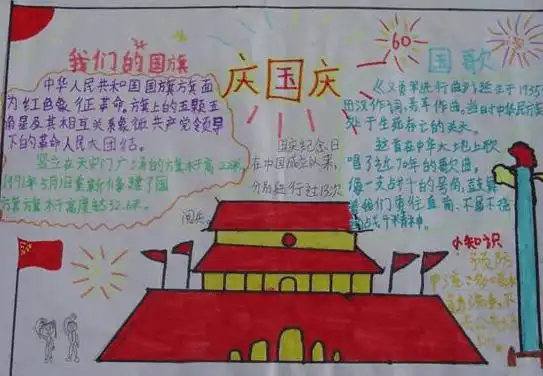 我们的国旗
中华人民共和国国旗旗面
为红色象征革命,旗上的五颗五
角星及其相互关系象征共产党领导
下的革命人民大团结。
竖立在天安门广场的旗杆高22米,
1991年5月1日重新修建了国
旗旗杆高度达32.6米。
庆国庆
国庆纪念日
在中国成立以来,
分别进行过13次
阅兵
60
国歌
《义勇军进行曲》诞生于1935
田汉作词,聂耳作曲,当时中华民族
处于生死存亡的关头。
这首在中华大地上歌
唱了近70年的歌曲,
像一支战斗的号角,鼓舞
着我们勇往直前、不屈不挠
战斗精神。
小知识
预防
甲流